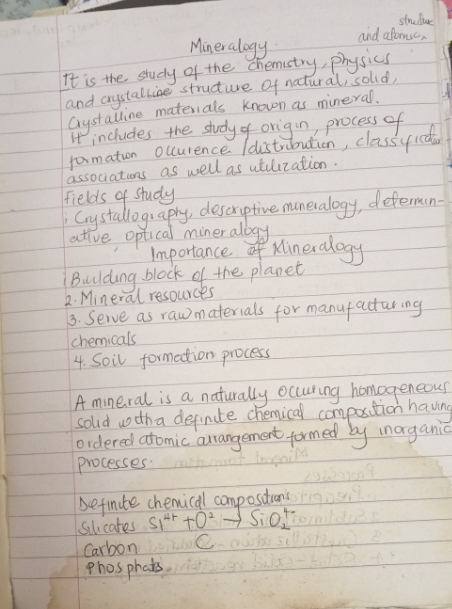 structure
and atomic
Mineralogy
It is the study of the chemistry, physics
and crystalline structure of natural, solid,
Crystalline materials known as mineral.
It includes the study of origin, process of
formation occurence /distribution, classification
associations as well as utilization.
fields of study
i Crystallography, descriptive mineralogy, determin-
ative optical mineralogy
Importance of Mineralogy
1 Building block of the planet
2. Mineral resources
3. Serve as raw materials for manufacturing
chemicals
4. Soil formation process
A mineral is a naturally occuring homogeneous
solid with a definite chemical composition having
ordered atomic arrangement formed by inorganic
processes.
Definite chemical compositions
Silicates Si⁴⁺ + O² → SiO₄⁴⁻
Carbon C
Phosphate